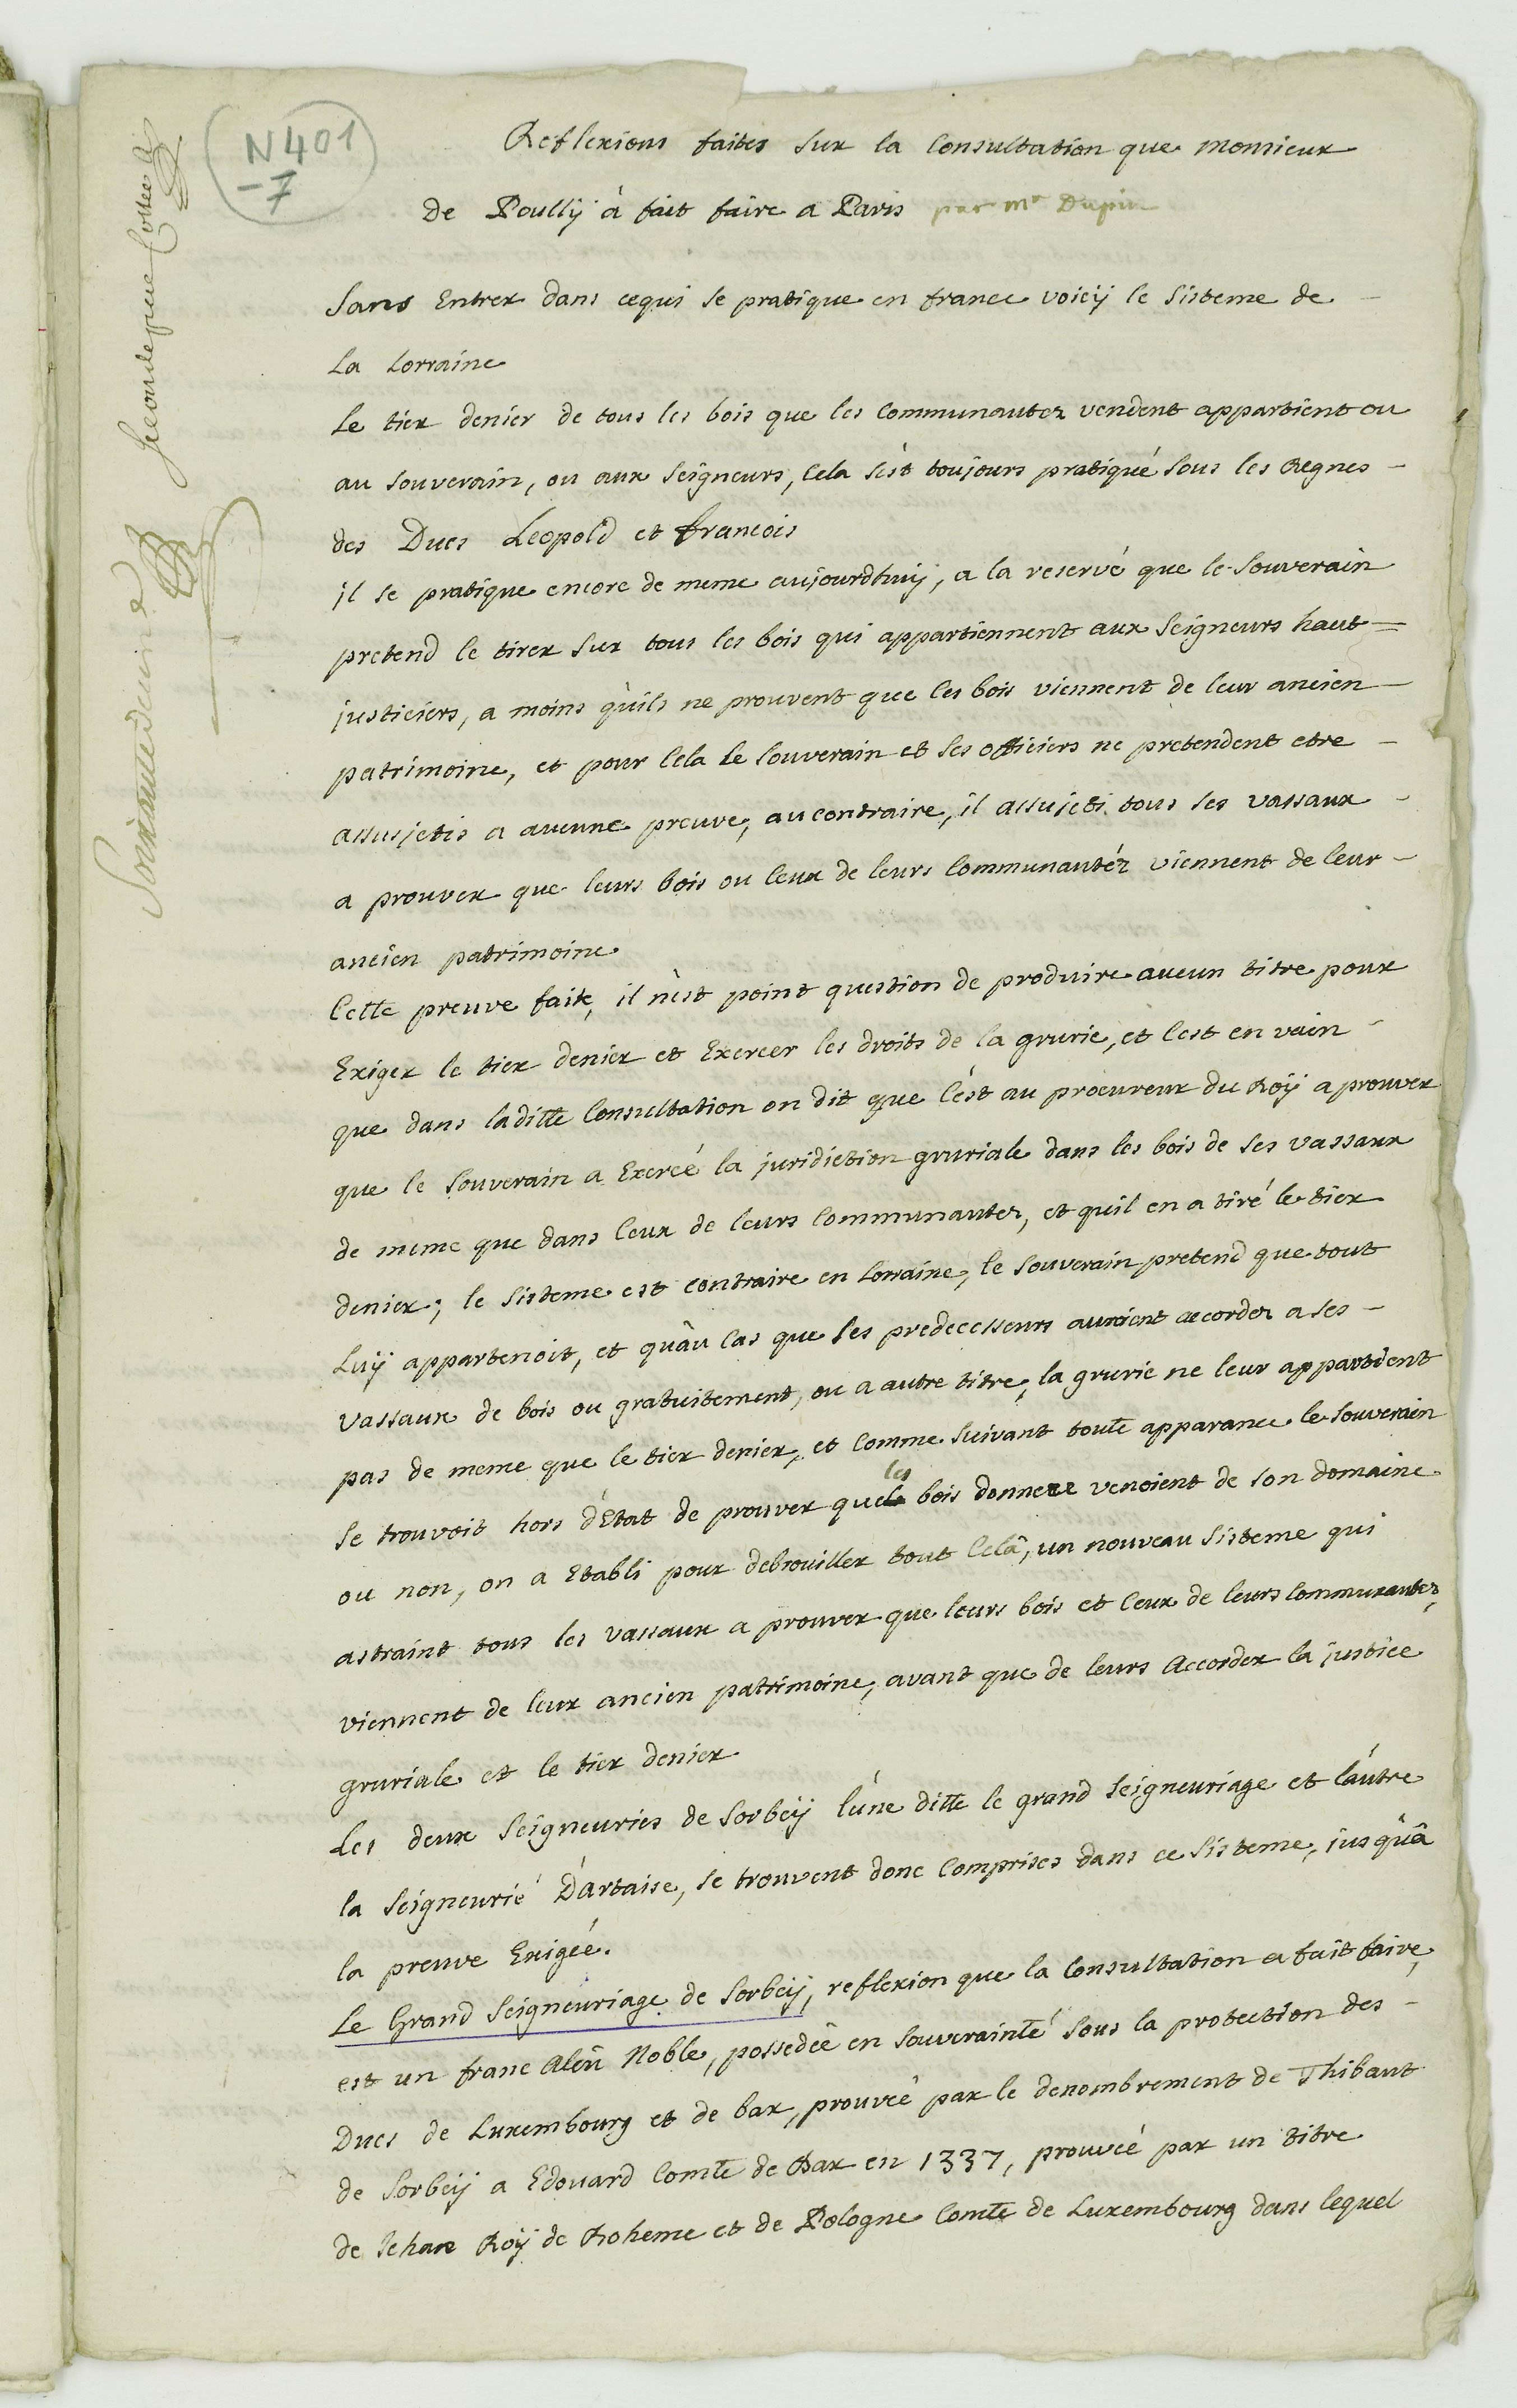 N 401
- 7
Reflexions faites sur la Consultation que monsieur
de Poüilly à fait faire a Paris par mr Dupin
Sans Entrer dans cequi se pratique en france voicÿ le sisteme de
La Lorraine
Le tier denier de tous les bois que les Communautez vendent appartient ou
au souverain, ou aux seigneurs, Cela s'est toujours pratiqué sous les Regnes
des Ducs Leopold et francois
il se pratique encore de meme aujourdhuÿ, a la reservé que le souverain
pretend le tirer sur tous les bois qui appartiennent aux seigneurs haut=
justiciers, a moins qu'ils ne prouvent que les bois viennent de leur ancien
patrimoine, et pour Cela Le souverain et ses officiers ne pretendent etre
assusjetis a aucune preuve, aucontraire, il assujeti tous ses vassaux
a prouver que leurs bois ou Ceux de leurs Communautéz viennent de leur
ancien patrimoine
Cette preuve faite, il n'est point question de produire aucun titre pour
Exiger le tier denier et Exercer les droits de la grurie, et C'est en vain
que dans laditte Consultation on dit que C'est au procureur du Roÿ a prouver
que le souverain a Exercé la juridiction gruriale dans les bois de ses vassaux
de meme que dans Ceux de leurs Communautez, et quil en a tiré le tier
denier; le sisteme est contraire en Lorraine, le souverain pretend que tout
Luÿ appartenoit, et qu'au Cas que ses predecesseurs auroient accordez a ses
vassaux de bois ou gratuitement, ou a autre titre, la grurie ne leur appartient
pas de meme que le tier denier, et Comme suivant toutte apparance le souverain
se trouvoit hors d'Etat de prouver que les bois donnere venoient de son domaine
ou non, on a Etabli pour debrouiller tout Cela, un nouveau sisteme qui
astraint tous les vassaux a prouver que leurs bois et Ceux de leurs Communautez,
viennent de leur ancien patrimoine, avant que de leurs Accorder la justice
gruriale et le tier denier
Les deux seigneuries de Sorbeÿ l'une ditte le grand seigneuriage et l'autre
la seigneurie D'artaise, se trouvent donc Comprises dans ce sisteme, jusqu'à
la preuve Exigée.
Le Grand seigneuriage de Sorbeÿ, reflexion que la Consultation a fait faire,
est un franc Aleu Noble, possedée en souveraineté sous la protection des
Ducs de Luxembourg et de bar, prouvée par le denombrement de Thibaut
de Sorbeÿ a Edouard Comte de Bar en 1337, prouvée par un titre
de Jehan Roÿ de Boheme et de Pologne Comte de Luxembourg dans lequel